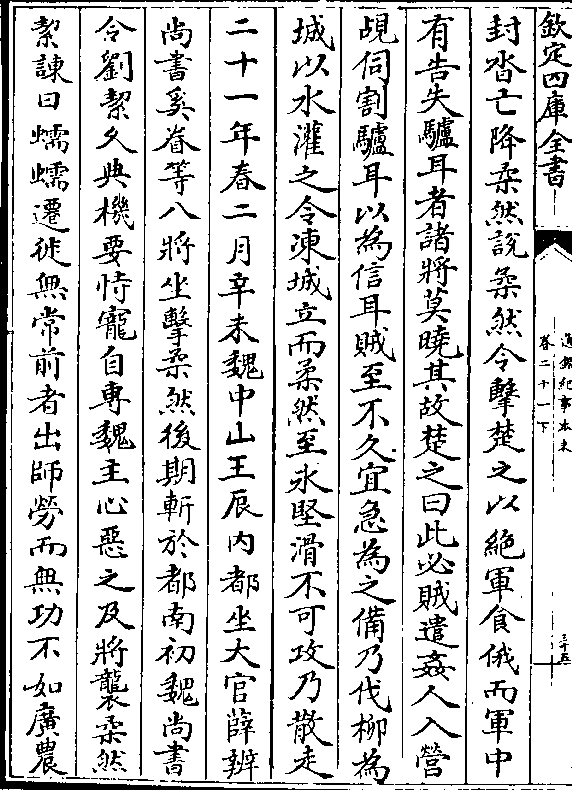 欽定四庫全書
通鑑紀事本末
卷二十一下
三十五
封沓亡降柔然說柔然令擊楚之以絕軍食俄而軍中
有告失驢耳者諸將莫曉其故楚之曰此必賊遣姦人入營
覘伺割驢耳以為信耳賊至不久宜急為之備乃伐柳為
城以水灌之令凍城立而柔然至氷堅滑不可攻乃散走
二十一年春二月辛未魏中山王辰內都坐大官薛辨
尚書奚眷等八將坐擊柔然後期斬於都南初魏尚書
令劉絜久典機要恃寵自專魏主心惡之及將襲柔然
絜諫曰蠕蠕遷徙無常前者出師勞而無功不如廣農